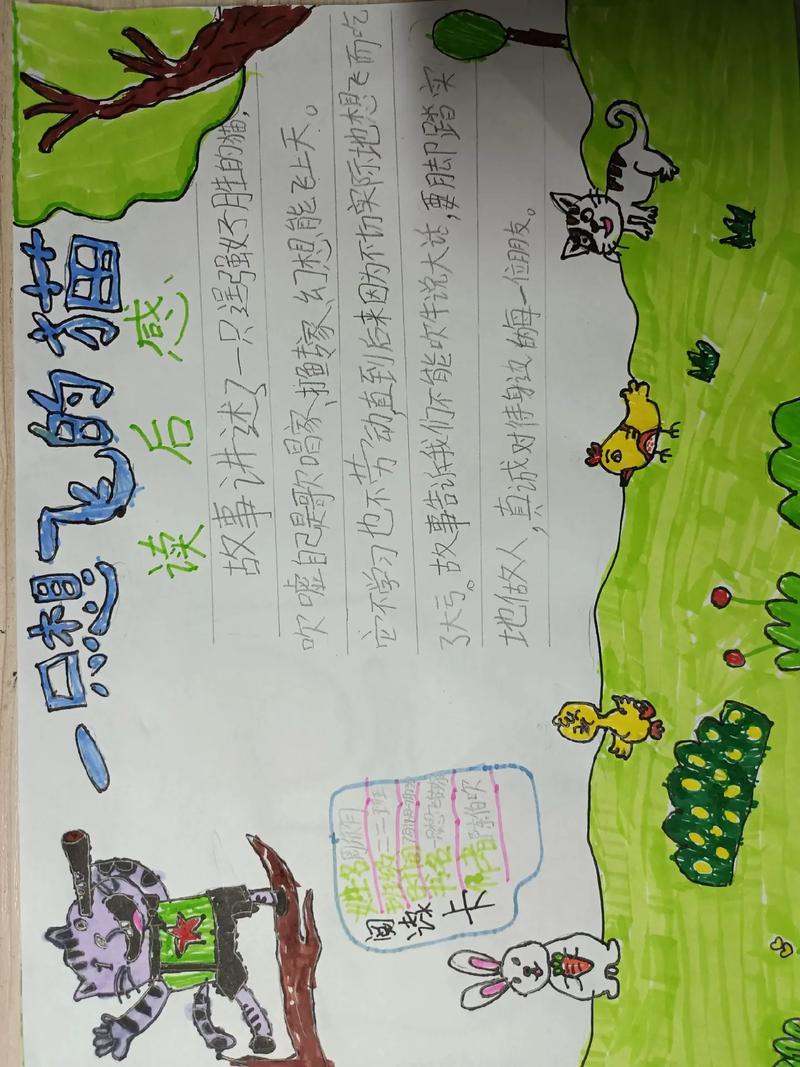 一只想飞的猫
读后感
故事讲述了一只逞强好胜的猫,
吹嘘自己是歌唱家、捕鱼专家、幻想能飞上天。
它不学习也不劳动直到后来因为不切实际地想飞而吃
了大亏。故事告诉我们不能吹牛说大话,要脚踏实
地做人,真诚对待身边的每一位朋友。
阅读卡
姓名
班级 二二班
时间
书名 一只想飞的猫
作者 陈伯吹